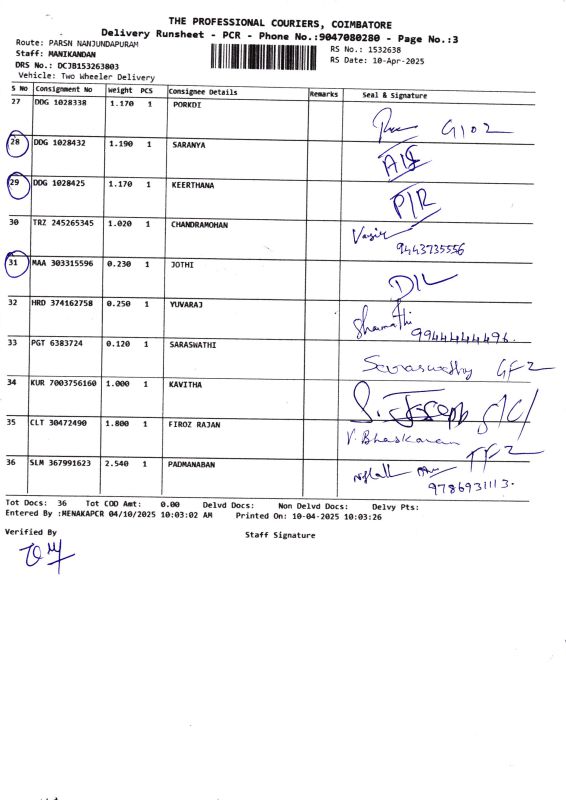 THE PROFESSIONAL COURIERS, COIMBATORE
Delivery Runsheet - PCR - Phone No.:9047080280 - Page No.:3
Route: PARSN NANJUNDAPURAM
RS No.: 1532638
Staff: MANIKANDAN
RS Date: 10-Apr-2025
DRS No.: DCJB153263803
Vehicle: Two Wheeler Delivery
S No Consignment No Weight PCS Consignee Details Remarks Seal & Signature
27 DDG 1028338 1.170 1 PORKDI G102
28 DDG 1028432 1.190 1 SARANYA
29 DDG 1028425 1.170 1 KEERTHANA P/R
30 TRZ 245265345 1.020 1 CHANDRAMOHAN
9443735556
31 MAA 303315596 0.230 1 JOTHI D/L
32 HRD 374162758 0.250 1 YUVARAJ
9944444496.
33 PGT 6383724 0.120 1 SARASWATHI GF2
34 KUR 7003756160 1.000 1 KAVITHA S. Joseph
35 CLT 30472490 1.800 1 FIROZ RAJAN V. Bhaskaran TF2
36 SLM 367991623 2.540 1 PADMANABAN
9786931113.
Tot Docs: 36 Tot COD Amt: 0.00 Delvd Docs: Non Delvd Docs: Delvy Pts:
Entered By :MENAKAPCR 04/10/2025 10:03:02 AM Printed On: 10-04-2025 10:03:26
Verified By
Staff Signature